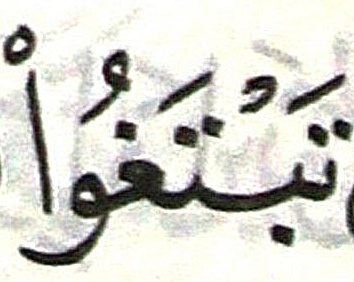 تَبْتَغُواْ